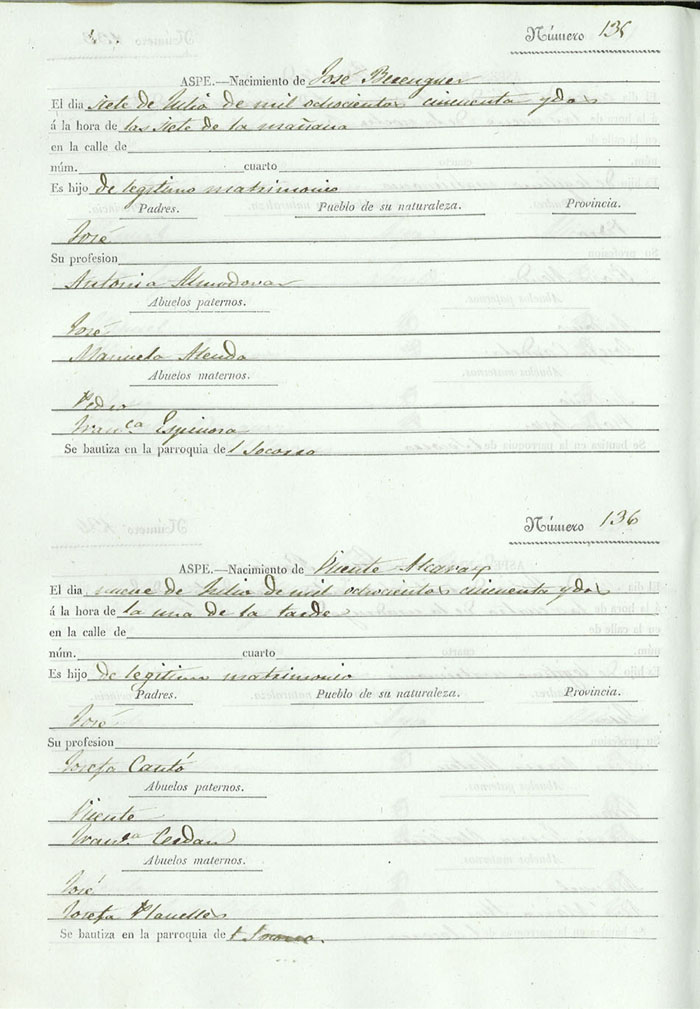 Número 135
ASPE.—Nacimiento de José Berenguer
El dia siete de Julio de mil ochocientos cincuenta y dos
á la hora de las siete de la mañana
en la calle de
núm. cuarto
Es hijo de legitimo matrimonio
Padres. Pueblo de su naturaleza. Provincia.
José
Su profesion
Antonia Almodovar
Abuelos paternos.
José
Manuela Alenda
Abuelos maternos.
Pedro
Franca Espinosa
Se bautiza en la parroquia de l Socorro
Número 136
ASPE.—Nacimiento de Vicente Alcaraz
El dia nueve de Julio de mil ochocientos cincuenta y dos
á la hora de la una de la tarde
en la calle de
núm. cuarto
Es hijo de legitimo matrimonio
Padres. Pueblo de su naturaleza. Provincia.
José
Su profesion
Josefa Cantó
Abuelos paternos.
Vicente
Franca Cerdan
Abuelos maternos.
José
Josefa Planelles
Se bautiza en la parroquia de